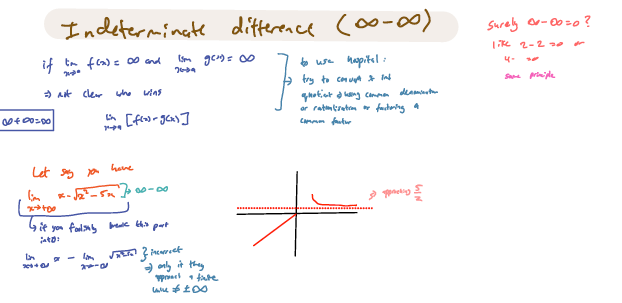 Indeterminate difference (∞-∞)
Surely ∞-∞=0?
like 2-2=0 or
4- =0
same principle
if lim x→a f(x) = ∞ and lim x→a g(x) = ∞
⇒ not clear who wins
∞+∞=∞
lim x→a [f(x)-g(x)]
to use hopital:
try to convert to
quotient using common denominator
or rationalisation or factoring a
common factor
Let say you have
lim x→+∞ x-√x²-5x ⇒ ∞-∞
↳ if you break this part
into:
lim x→+∞ x - lim x→-∞
} incorrect
⇒ only if they
approach a finite
value ≠ ±∞
⇒ approaching 5/2